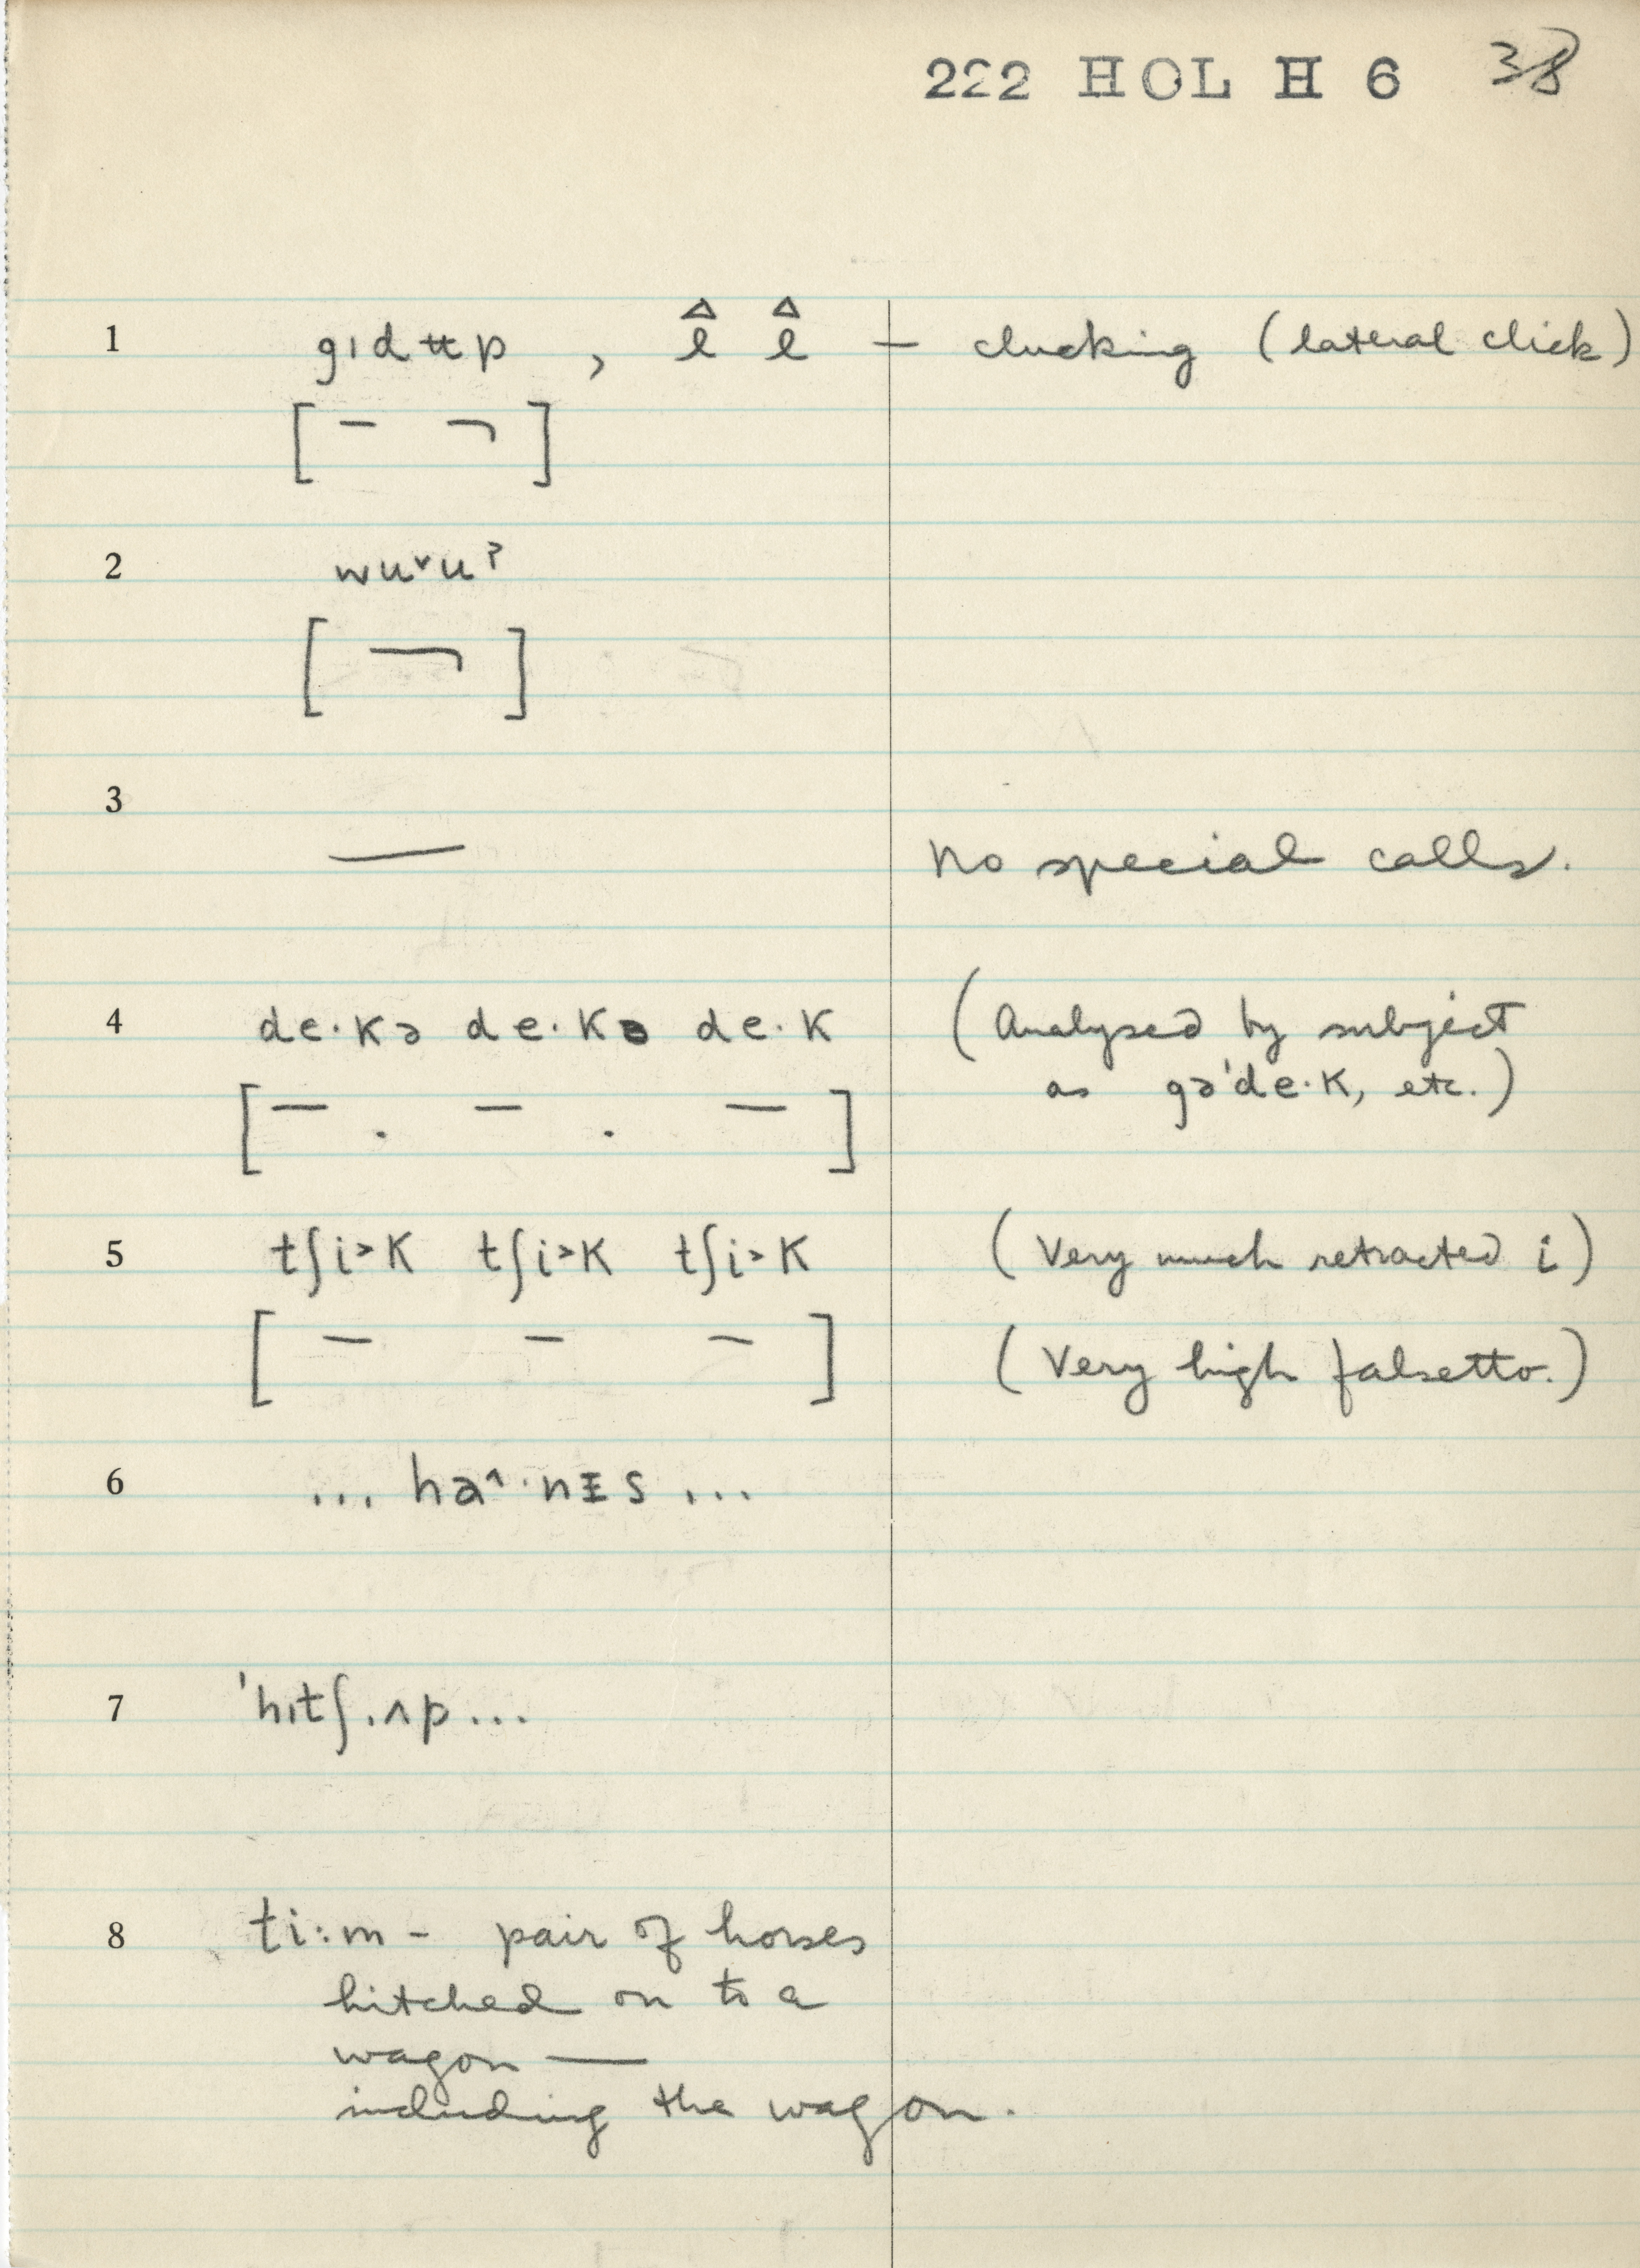 222 HOL H 6 38
1 gıdʉp , l̂ l̂ — clucking (lateral click)
[ – ¬ ]
2 wu˅uˀ
[ ¬ ]
3 — No special calls.
4 de·kə de·kə de·k (Analysed by subject
as gə'de·k, etc.)
[ – . – . – ]
5 tʃi˃k tʃi˃k tʃi˃k (Very much retracted i)
[ – – – ] (Very high falsetto.)
6 ... ha˄·nɪs ...
7 'hıtʃ.ʌp ...
8 ti:m - pair of horses
hitched on to a
wagon —
including the wagon.